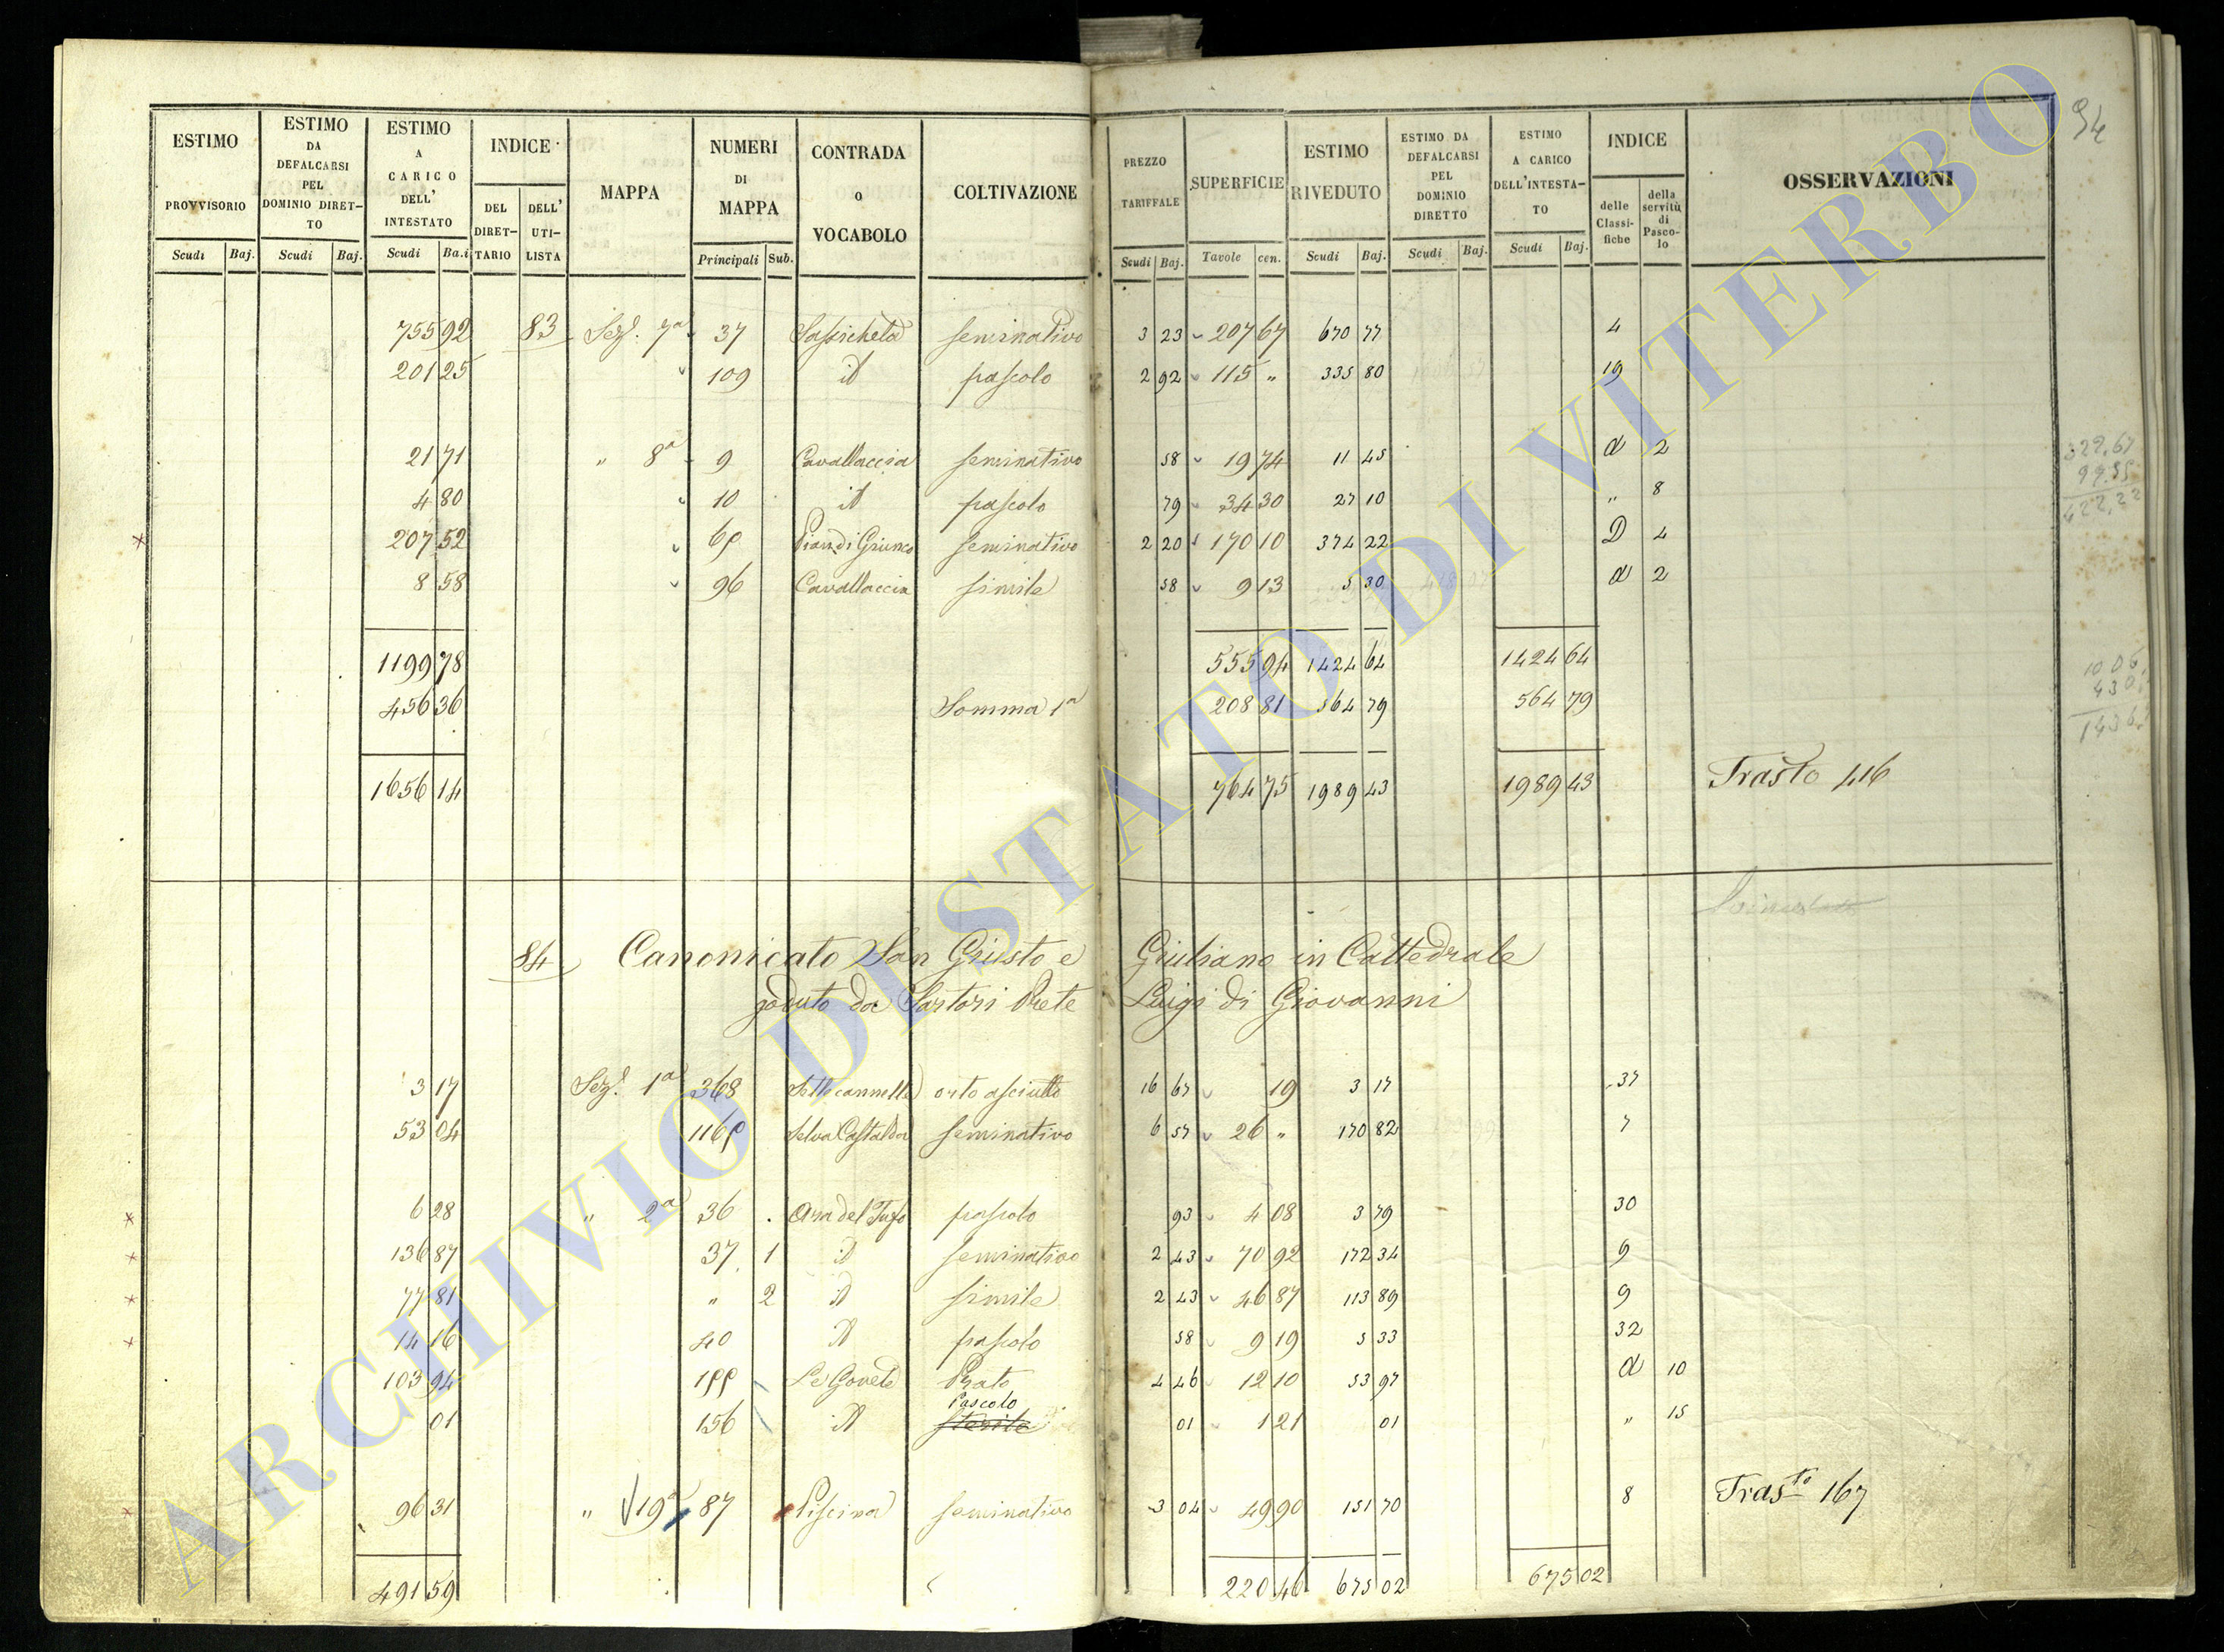 94
ESTIMO PROVVISORIO
ESTIMO DA DEFALCARSI PEL DOMINIO DIRET-TO
ESTIMO A CARICO DELL' INTESTATO
INDICE
DEL DIRET-TARIO
DELL' UTI-LISTA
MAPPA
NUMERI DI MAPPA
CONTRADA o VOCABOLO
COLTIVAZIONE
PREZZO TARIFFALE
SUPERFICIE
ESTIMO RIVEDUTO
ESTIMO DA DEFALCARSI PEL DOMINIO DIRETTO
ESTIMO A CARICO DELL'INTESTA-TO
INDICE
delle Classi-fiche
della servitù di Pasco-lo
OSSERVAZIONI
Scudi Baj. Scudi Baj. Scudi Ba.i Principali Sub. Scudi Baj. Tavole cen. Scudi Baj. Scudi Baj. Scudi Baj.
755 92 83 Sez.e 7a 37 Sassicheta seminativo 3 23 207 67 670 77 4
201 25 109 id pascolo 2 92 115 " 335 80 19
21 71 " 8a 9 Cavallaccia seminativo 58 19 74 11 45 d 2
4 80 10 id pascolo 79 34 30 27 10 " 8
207 52 69 Pian di Giunco seminativo 2 20 170 10 374 22 D 4
8 58 96 Cavallaccia simile 58 9 13 5 30 d 2
322,67
99.55
422,22
1199 78 555 94 1424 64 1424 64
456 36 Somma 1a 208 81 564 79 564 79
1656 14 764 75 1989 43 1989 43 Trasto 416
84 Canonicato San Giusto e Giuliano in Cattedrale
goduto da Sartori Prete Luigi di Giovanni
3 17 Sez.e 1a 368 Sette cannelle orto asciutto 16 67 19 3 17 37
53 04 1169 Selva Castalda seminativo 6 57 26 " 170 82 7
6 28 " 2a 36 Ara del Tufo pascolo 93 4 08 3 79 30
136 87 37 1 id seminativo 2 43 70 92 172 34 9
77 81 " 2 id simile 2 43 46 87 113 89 9
14 16 40 id pascolo 58 9 19 5 33 32
103 94 199 Prato 4 46 12 10 53 97 d 10
Pascolo
01 156 id sterile 01 1 21 01 " 15
96 31 " 19a 87 Piscina seminativo 3 04 49 90 151 70 8 Trasto 167
491 59 220 46 675 02 675 02
ARCHIVIO DI STATO DI VITERBO